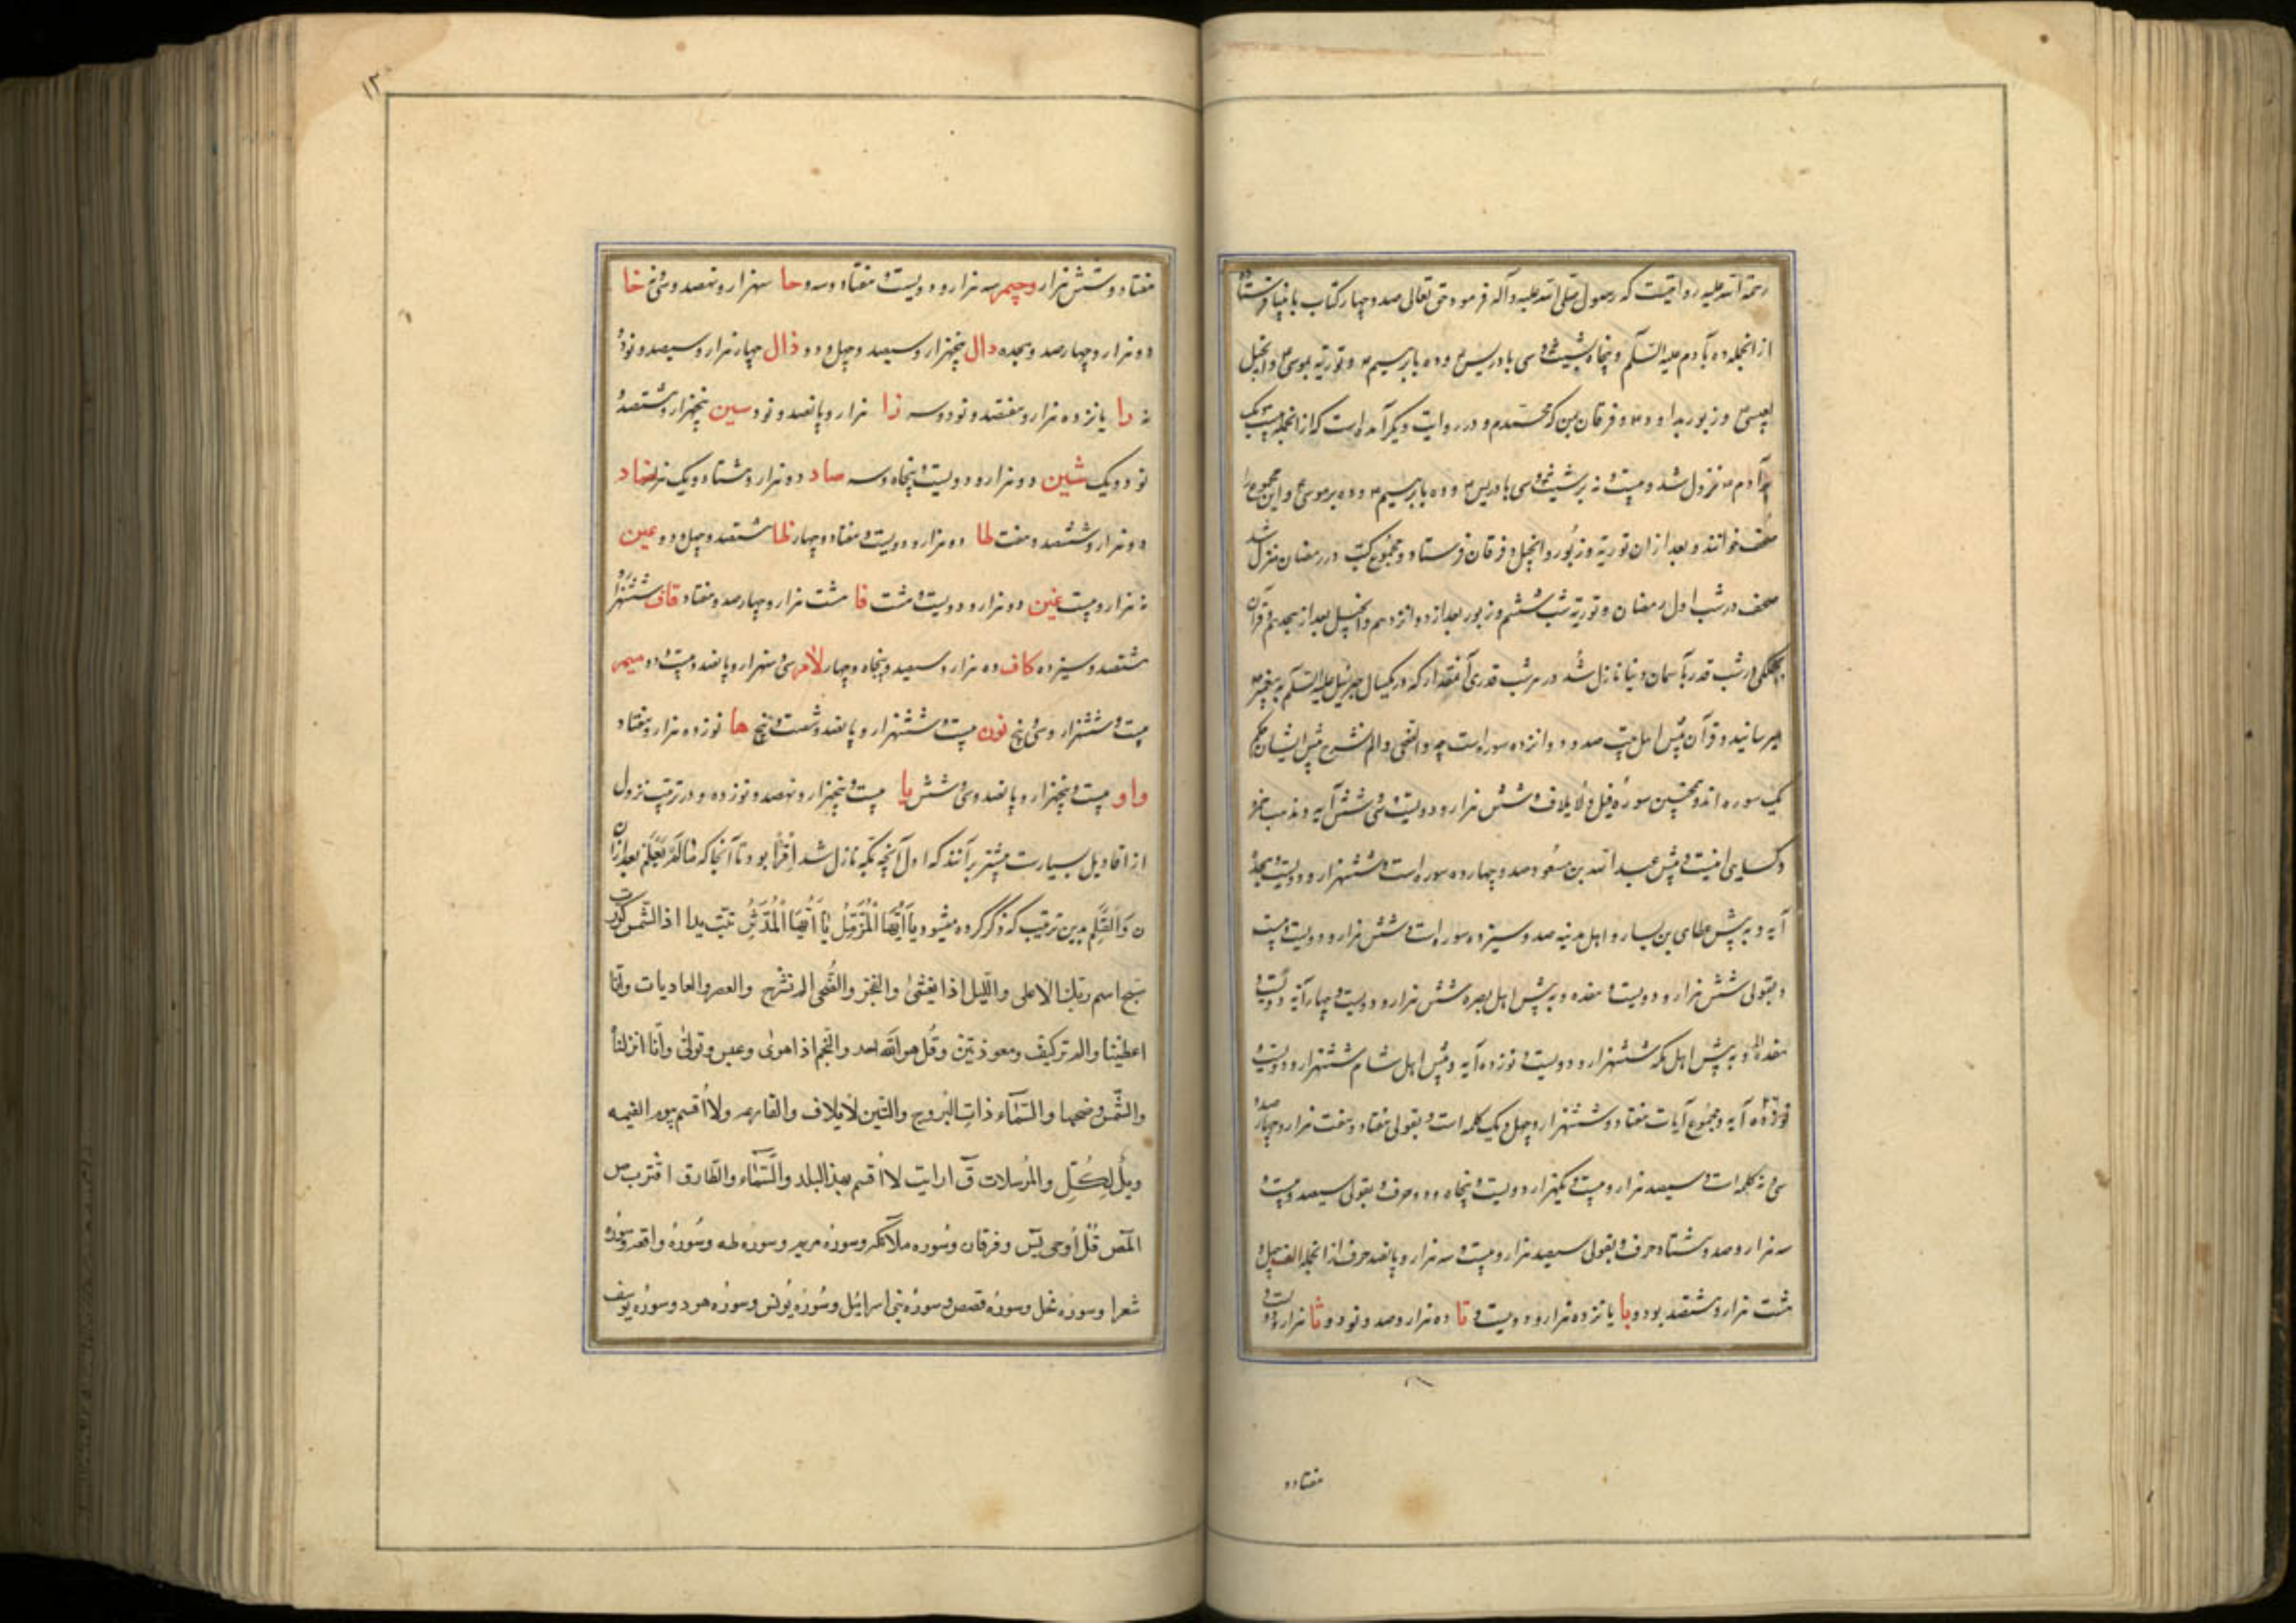 رحمة الله علیه روایتست که رسول صلی الله علیه و آله فرمود حق تعالی صد و چهار کتاب بانبیا فرستاد
از انجمله ده بآدم علیه السلام و پنجاه بشیث و سی بادریس و ده بابرهیم و توریة بموسی و انجیل
بعیسی و زبور بداود و فرقان بمن که محمدم و در روایت دیگر آمده است که از انجمله بیست یک
بر آدم نزول شد و بیست نه بر شیث و سی بادریس و ده بابرهیم و ده بر موسی و این مجموع را
صحف خوانند و بعد از ان توریة و زبور و انجیل و فرقان فرستاد و مجموع کتب در رمضان منزل شد
صحف در شب اول رمضان و توریة شب ششم و زبور بعد از دوازدهم و انجیل بعد از هجدهم و قرآن
بجملگی در شب قدر بآسمان دنیا نازل شد در هر شب قدری آنمقدار که در یکسال جبرئیل علیه السلام به پیغمبر
میرسانید و قرآن پیش اهل بیت صد و دوازده سوره است چه و الضحی و الم نشرح پیش ایشان حکم
یک سوره اند و همچنین سوره فیل و لایلاف و شش هزار و دویست و سی شش آیه و مذهب حمزه
و کسایی اینست و پیش عبد الله بن مسعود صد و چهارده سوره است و ششهزار و دویست هجده
آیه و به پیش عطای بن یسار و اهل مدینه صد و سیزده سوره است و شش هزار و دویست بیست
و بقولی شش هزار و دویست و هفده و به پیش اهل بصره شش هزار و دویست و چهار آیه و دویست
هفده و به پیش اهل مکه ششهزار و دویست و نوزده آیه و پیش اهل شام ششهزار و دویست
آیه و مجموع آیات هفتاد و ششهزار و چهل و یک کلمه است و بقولی هفتاد و هفت هزار و چهارصد و
سی نه کلمه است و سیصد هزار و بیست و یکهزار و دویست و پنجاه و دو حرف و بقولی سیصد و بیست
سه هزار و صد و هشتاد حرف و بقولی سیصد هزار و بیست و سه هزار و پانصد حرف از انجمله الف چهل و
هشت هزار و هشتصد بود و با یازده هزار و دویست و تا ده هزار و صد و نود و ثا هزار و دویست و
هفتاد و
١٢
هفتاد و شش هزار و جیم سه هزار و دویست هفتاد و سه و حا سهزار و نهصد و سی نه خا
دو هزار و چهارصد و هجده دال پنجهزار و سیصد و چهل و دو ذال چهار هزار و سیصد و نود و
نه را یازده هزار و هفتصد و نود و سه زا هزار و پانصد و نود سین پنجهزار و هشتصد و
نود و یک شین دو هزار و دویست و پنجاه و سه صاد دو هزار و هشتاد و یک هزار ضاد
دو هزار و ششصد و هفت طا ده هزار و دویست و هفتاد و چهار ظا هشتصد و چهل و دو عین
نه هزار و بیست غین دو هزار و دویست هشت فا هشت هزار و چهارصد و هفتاد قاف ششهزار و
هشتصد و سیزده کاف ده هزار و سیصد و پنجاه و چهار لام سی سهزار و پانصد و بیست و دو میم
بیست و ششهزار و سی پنج نون بیست و ششهزار و پانصد و شصت و پنج ها نوزده هزار و هفتاد
واو بیست و پنجهزار و پانصد و سی شش یا بیست و پنجهزار و نهصد و نوزده و در ترتیب نزول
از اقاویل بسیارست بیشتر بر آنند که اول آنچه بمکه نازل شد اقرأ بود تا آنجا که مَا لَمْ یَعْلَمْ بعد از ان
ن وَالْقَلَمِ بدین ترتیب که ذکر کرده میشود یَا اَیُّهَا الْمُزَّمِّلُ یَا اَیُّهَا الْمُدَّثِّرُ تبّت یدا اذا الشمس کورت
سبح اسم ربک الاعلی و اللیل اذا یغشی و الفجر و الضحی الم نشرح و العصر و العادیات و انّا
اعطینا و الم تر کیف و معوذتین و قُل هو الله احد و النجم اذا هوی و عبس و تولی و انّا انزلنا
و الشمس و ضحیها و السماء ذات البروج و التین لایلاف و القارعه و لا اقسم بیوم القیمه
ویل لکل و المرسلات ق ارایت لا اقسم بهذا البلد و السماء و الطارق اقترب ص
المص قل اوحی یس و فرقان و سوره ملائکه و سوره مریم و سوره طه و سوره واقعه و سوره
شعرا و سوره نمل و سوره قصص و سوره بنی اسرائیل و سوره یونس و سوره هود و سوره یوسف